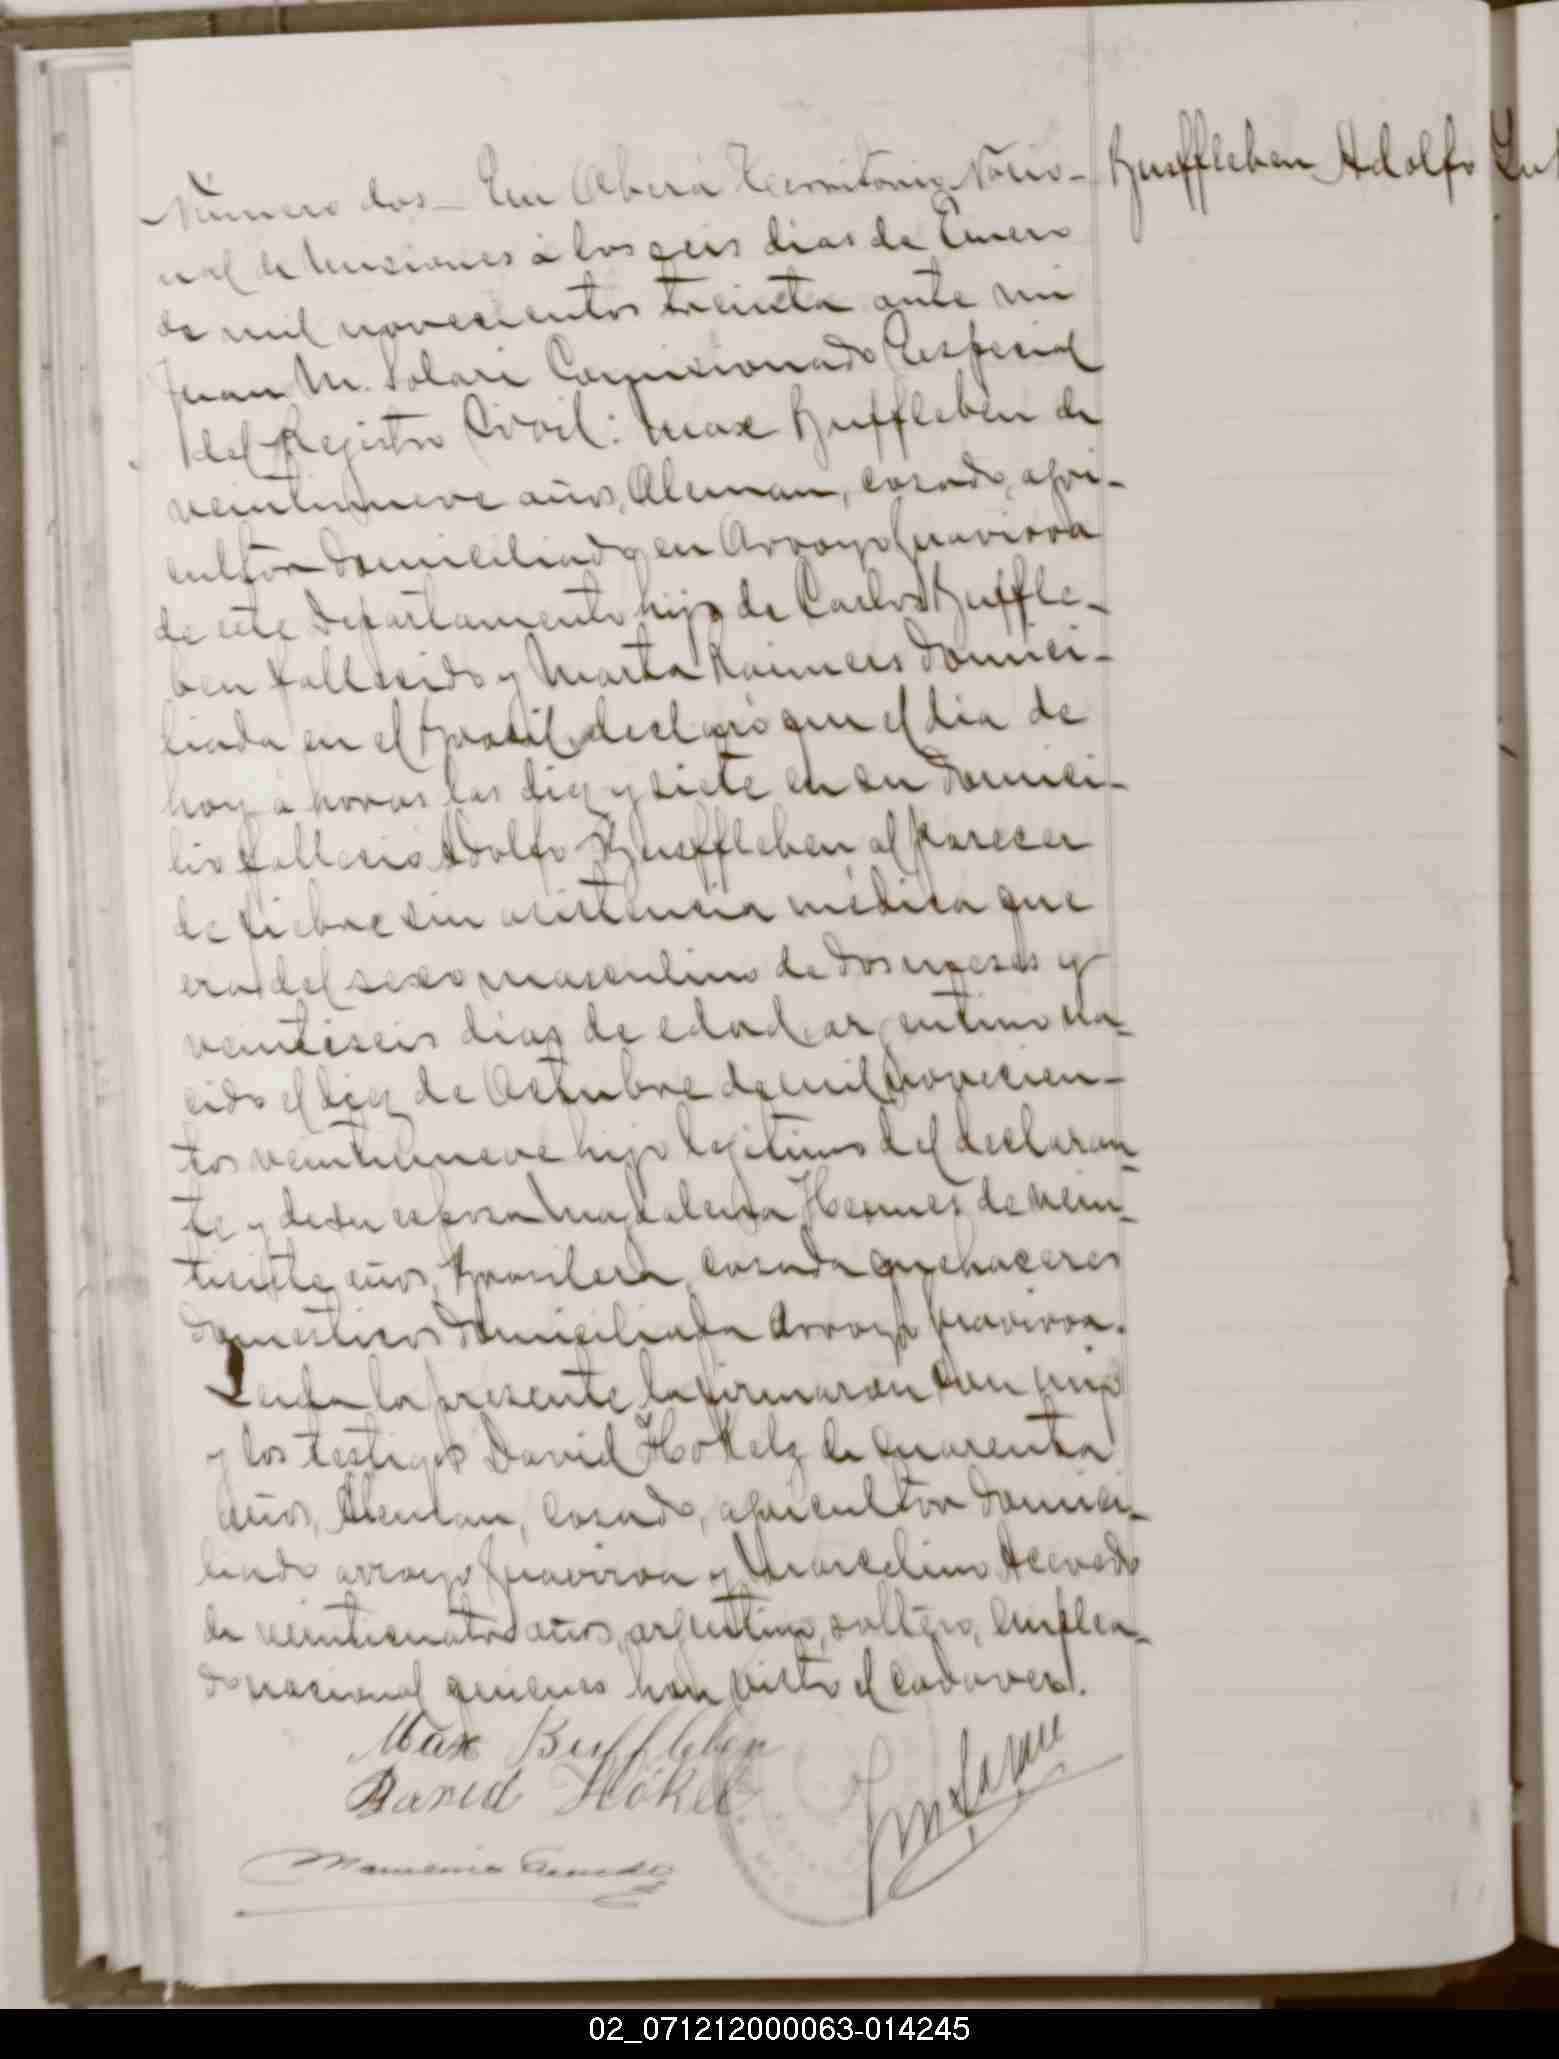 Buffleben Adolfo
Número dos_ En Oberá Territorio Nacio-
nal de Misiones á los seis dias de Enero
de mil novecientos treinta ante mi
Juan M. Solari Comisionado Especial
del Registro Civil: Max Buffleben de
veintinueve años, Aleman, casado, agri-
cultor domiciliado en Arroyo Guavirova
de este Departamento hijo de Carlos Buffle-
ben fallecido y Marta Raimers domici-
liada en el Brasil, declaró que el dia de
hoy á horas las diez y siete en su domici-
lio falleció Adolfo Buffleben al parecer
de fiebre sin asistencia médica que
era del sexo masculino de dos meses y
veintiseis dias de edad argentino na-
cido el diez de Octubre de mil novecien-
tos veintinueve hijo legitimo del declaran-
te y de su esposa Magdalena Hermes de vein-
tisiete años, Brasilera, casada quehaceres
domésticos domiciliada Arroyo Guavirova.
Leida la presente la firmaron con migo
y los testigos David Hökelz de cuarenta
años, Aleman, casado, agricultor domici-
liado arroyo Guavirova y Marcelino Acevedo
de veinticuatro años, argentino, soltero, emplea-
do nacional quienes han visto el cadaver.
Max Buffleben
David Hökel
02_071212000063-014245